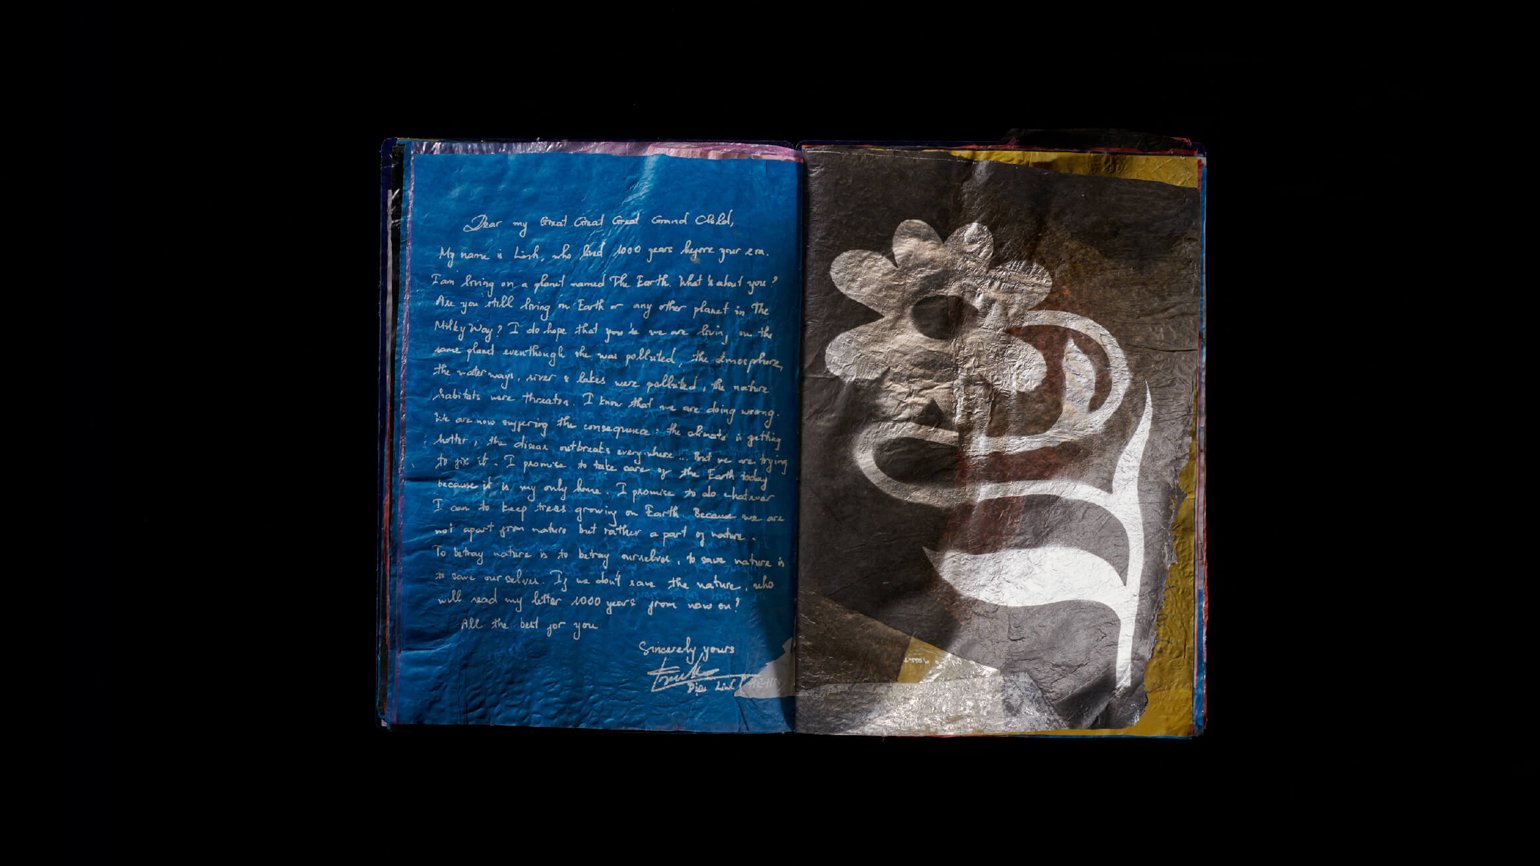 Dear my Great Great Great Grand Child,
My name is Linh, who lived 1000 years before your era.
I am living on a planet named The Earth. What is about you?
Are you still living on Earth or any other planet in The
Milky Way? I do hope that you're we are living on the
same planet eventhough she was polluted, the atmosphere,
the water ways, river & lakes were polluted, the nature
habitats were threaten. I know that we are doing wrong.
We are now suffering the consequence: the climate is getting
hotter, the disease outbreaks everywhere... But we are trying
to fix it. I promise to take care of the Earth today
because it is my only home. I promise to do whatever
I can to keep trees growing on Earth. Because we are
not apart from nature but rather a part of nature.
To betray nature is to betray ourselves, to save nature is
to save ourselves. If we don't save the nature, who
will read my letter 1000 years from now on?
All the best for you
Sincerely yours
Linh